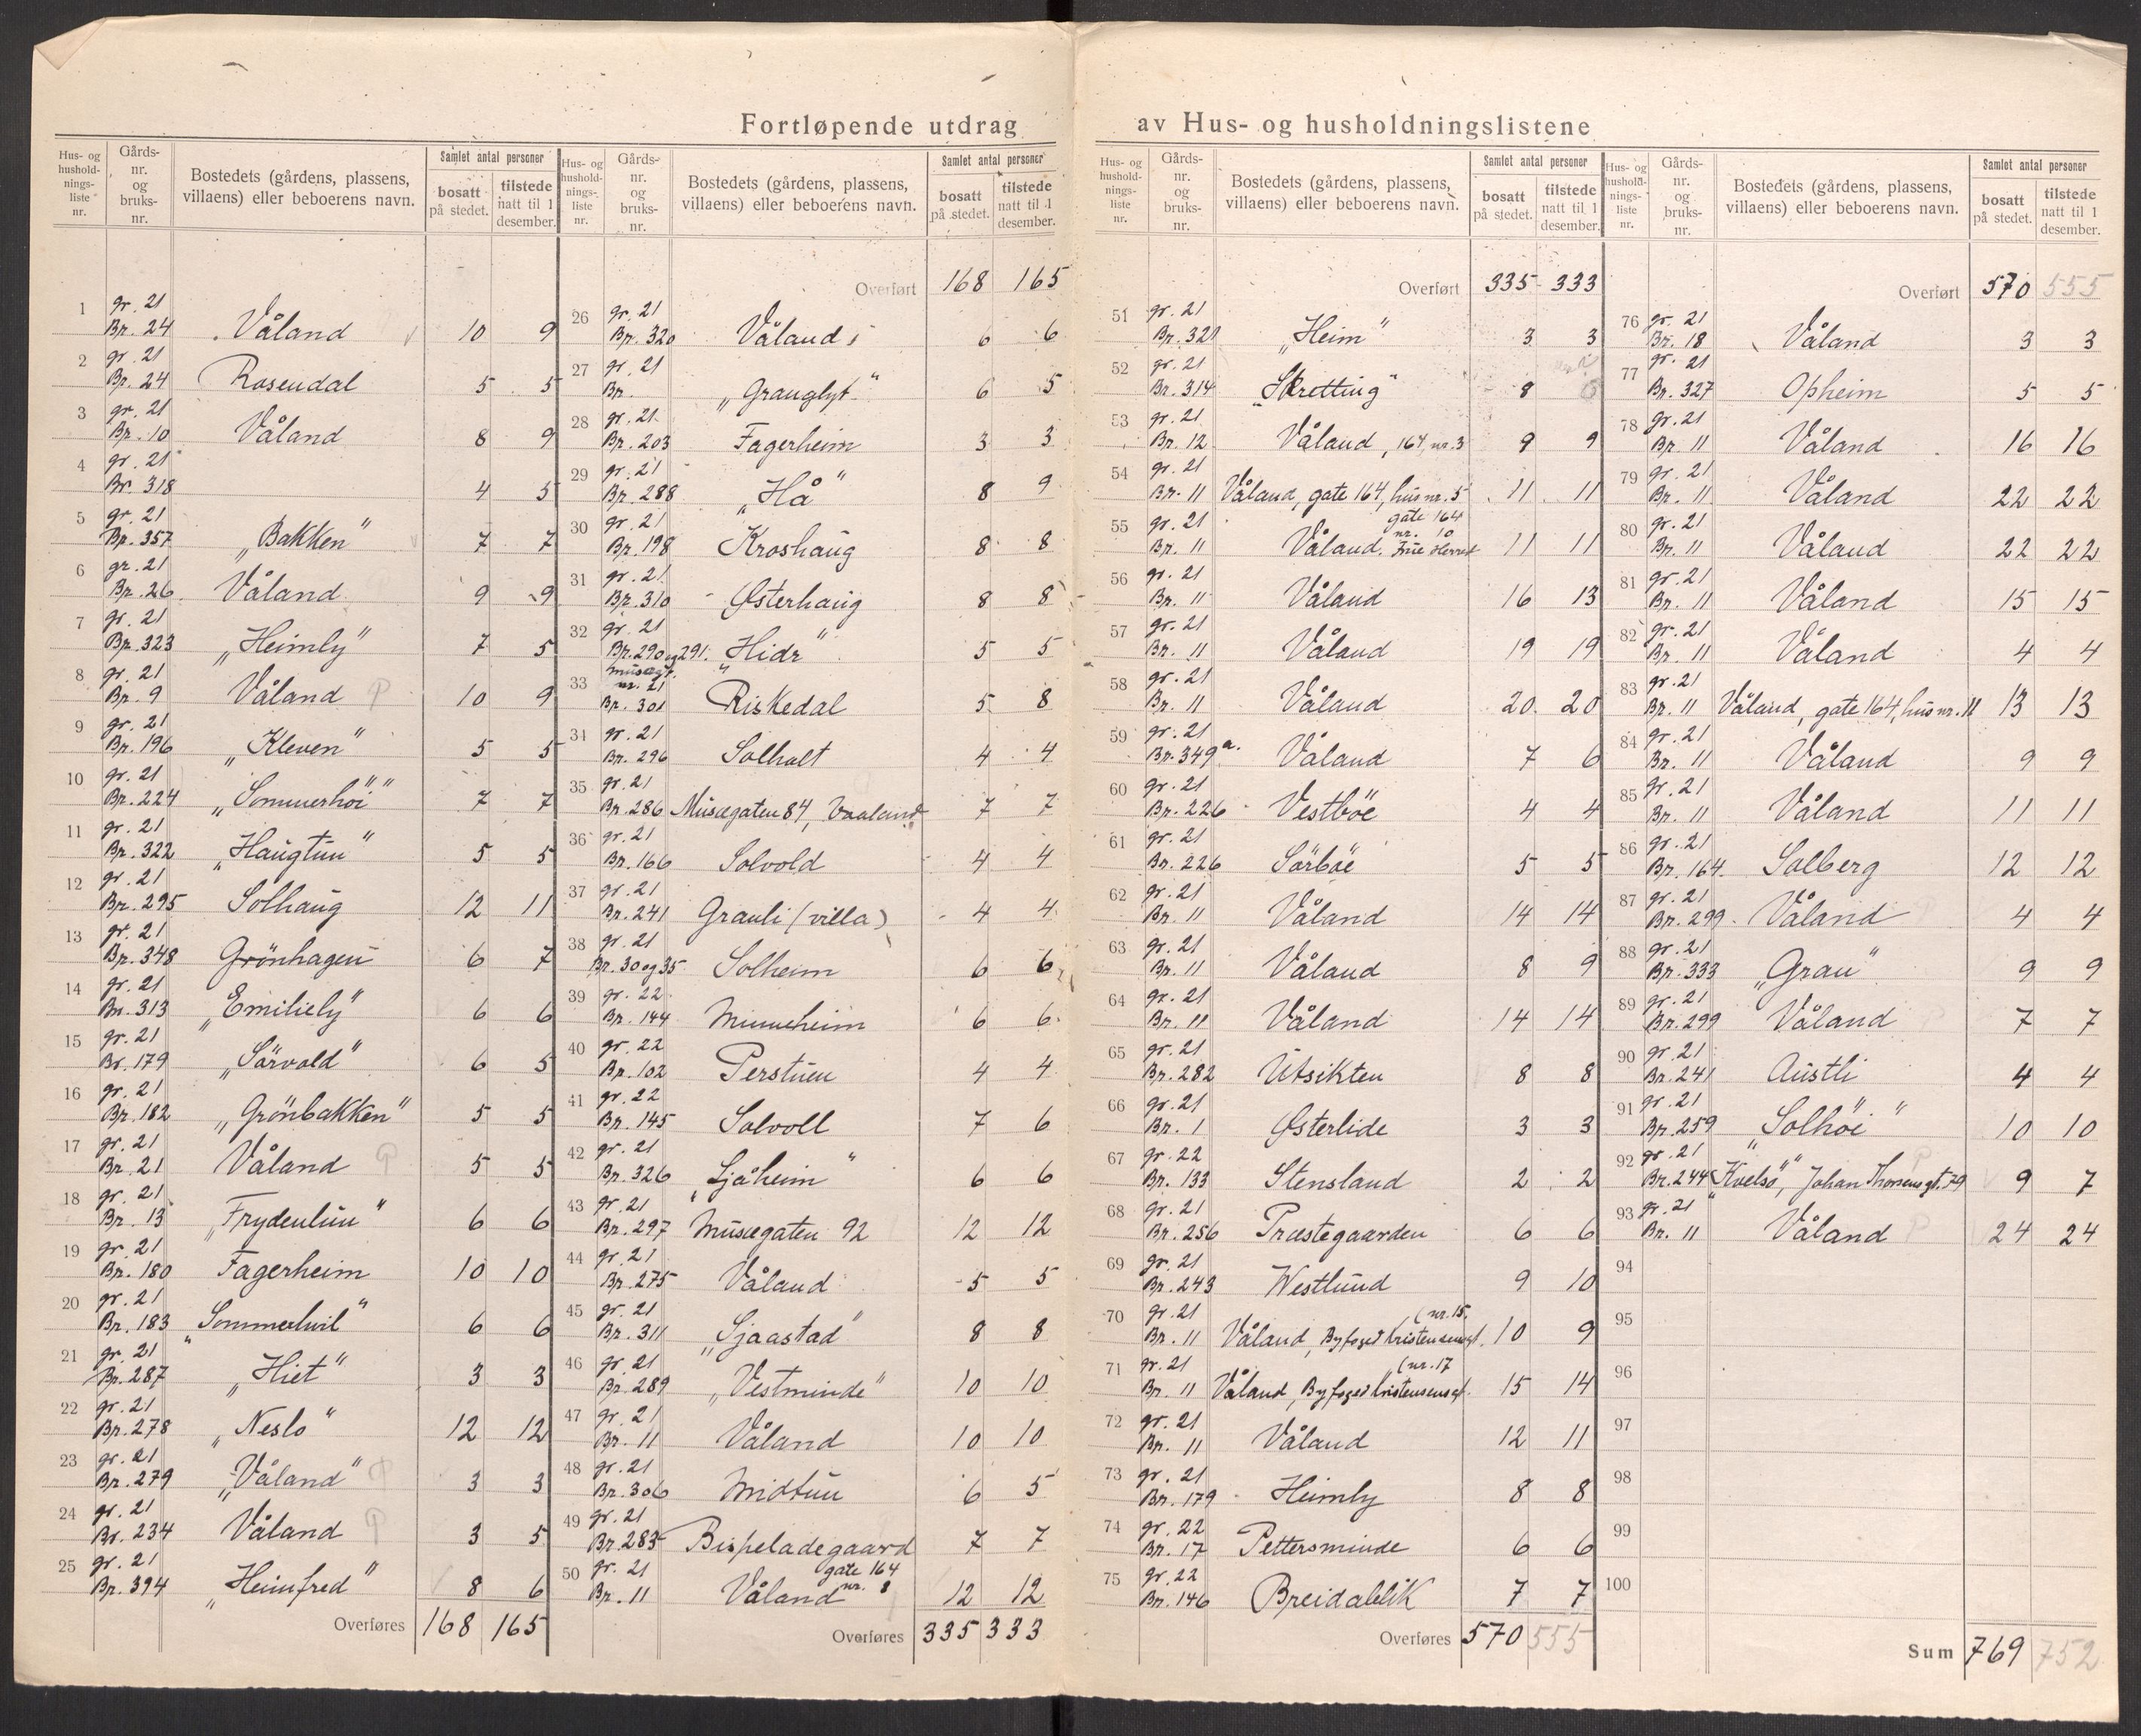 Fortløpende utdrag av Hus- og husholdningslistene
Hus- og husholdnings- liste nr. | Gårds- nr. og bruks- nr. | Bostedets (gårdens, plassens, villaens) eller beboerens navn. | Samlet antal personer | bosatt på stedet. | tilstede natt til 1 desember.
1 gr. 21 Br. 24 Våland 10 9
2 gr. 21 Br. 24 Rosendal 5 5
3 gr. 21 Br. 10 Våland 8 9
4 gr. 21 Br. 318 4 5
5 gr. 21 Br. 357 „Bakken" 7 7
6 gr. 21 Br. 26 Våland 9 9
7 gr. 21 Br. 323 „Heimly" 7 5
8 gr. 21 Br. 9 Våland 10 9
9 gr. 21 Br. 196 „Kleven" 5 5
10 gr. 21 Br. 224 „Sommerhöi" 7 7
11 gr. 21 Br. 322 „Haugtun" 5 5
12 gr. 21 Br. 295 Solhaug 12 11
13 gr. 21 Br. 348 Grönhagen 6 7
14 gr. 21 Br. 313 „Emiliely" 6 6
15 gr. 21 Br. 179 „Sörvold" 6 5
16 gr. 21 Br. 182 „Grönbakken" 5 5
17 gr. 21 Br. 21 Våland 5 5
18 gr. 21 Br. 13 „Frydenlun" 6 6
19 gr. 21 Br. 180 Fagerheim 10 10
20 gr. 21 Br. 183 „Sommerhvil" 6 6
21 gr. 21 Br. 287 „Hiet" 3 3
22 gr. 21 Br. 278 „Neslo" 12 12
23 gr. 21 Br. 279 „Våland" 3 3
24 gr. 21 Br. 234 Våland 3 5
25 gr. 21 Br. 394 „Heimfred" 8 6
Overføres 168 165
Hus- og husholdnings- liste nr. | Gårds- nr. og bruks- nr. | Bostedets (gårdens, plassens, villaens) eller beboerens navn. | Samlet antal personer | bosatt på stedet. | tilstede natt til 1 desember.
Overført 168 165
26 gr. 21 Br. 320 Våland 6 6
27 gr. 21 Br. „Granglyt" 6 5
28 gr. 21 Br. 203 Fagerheim 3 3
29 gr. 21 Br. 288 „Hå" 8 9
30 gr. 21 Br. 198 Kroshaug 8 8
31 gr. 21 Br. 310 Østerhaug 8 8
32 gr. 21 Br. 290 og 291. „Hidr" 5 5
33 nr. 21 Br. 301 Riskedal 5 8
34 gr. 21 Br. 296 Solholt 4 4
35 gr. 21 Br. 286 Museegaten 84, Vaaland 7 7
36 gr. 21 Br. 166 Solvold 4 4
37 gr. 21 Br. 241 Granli (villa) 4 4
38 gr. 21 Br. 30 og 35 Solheim 6 6
39 gr. 22 Br. 144 Minneheim 6 6
40 gr. 22 Br. 102 Perstuen 4 4
41 gr. 22 Br. 145 Solvoll 7 6
42 gr. 21 Br. 326 „Sjåheim" 6 6
43 gr. 21 Br. 297 Museegaten 92 12 12
44 gr. 21 Br. 275 Våland 5 5
45 gr. 21 Br. 311 „Sjaastad" 8 8
46 gr. 21 Br. 289 „Vestminde" 10 10
47 gr. 21 Br. 11 Våland 10 10
48 gr. 21 Br. 306 Midtun 6 5
49 gr. 21 Br. 283 Bispeladegaard 7 7
50 gr. 21 Br. 11 Våland gate 164 nr. 8 12 12
Overføres 335 333
Hus- og husholdnings- liste nr. | Gårds- nr. og bruks- nr. | Bostedets (gårdens, plassens, villaens) eller beboerens navn. | Samlet antal personer | bosatt på stedet. | tilstede natt til 1 desember.
Overført 335 333
51 gr. 21 Br. 321 „Heim" 3 3
52 gr. 21 Br. 314 „Skretting" 8
53 gr. 21 Br. 12 Våland, 164, nr. 3 9 9
54 gr. 21 Br. 11 Våland, gate 164, hus nr. 5 11 11
55 gr. 21 Br. 11 Våland. gate 164 nr. 10 11 11
56 gr. 21 Br. 11 Våland 16 13
57 gr. 21 Br. 11 Våland 19 19
58 gr. 21 Br. 11 Våland 20 20
59 gr. 21 Br. 349 a. Våland 7 6
60 gr. 21 Br. 226 Vestböe 4 4
61 gr. 21 Br. 226 Sörböe 5 5
62 gr. 21 Br. 11 Våland 14 14
63 gr. 21 Br. 11 Våland 8 9
64 gr. 21 Br. 11 Våland 14 14
65 gr. 21 Br. 282 Utsikten 8 8
66 gr. 21 Br. 1 Østerlide 3 3
67 gr. 22 Br. 133 Stensland 2 2
68 gr. 21 Br. 256 Præstegaarden 6 6
69 gr. 21 Br. 243 Westlund 9 10
70 gr. 21 Br. 11 Våland, Byfoged Kristensensgt. (nr. 15. 10 9
71 gr. 21 Br. 11 Våland, Byfoged Kristensensgt. (nr. 17 15 14
72 gr. 21 Br. 11 Våland 12 11
73 gr. 21 Br. 179 Heimly 8 8
74 gr. 22 Br. 17 Pettersminde 6 6
75 gr. 22 Br. 146 Breidablik 7 7
Overføres 570 555
Hus- og husholdnings- liste nr. | Gårds- nr. og bruks- nr. | Bostedets (gårdens, plassens, villaens) eller beboerens navn. | Samlet antal personer | bosatt på stedet. | tilstede natt til 1 desember.
Overført 570 555
76 gr. 21 Br. 18 Våland 3 3
77 gr. 21 Br. 327 Opheim 5 5
78 gr. 21 Br. 11 Våland 16 16
79 gr. 21 Br. 11 Våland 22 22
80 gr. 21 Br. 11 Våland 22 22
81 gr. 21 Br. 11 Våland 15 15
82 gr. 21 Br. 11 Våland 4 4
83 gr. 21 Br. 11 Våland, gate 164, hus nr. 11 13 13
84 gr. 21 Br. 11 Våland 9 9
85 gr. 21 Br. 11 Våland 11 11
86 gr. 21 Br. 164. Solberg 12 12
87 gr. 21 Br. 299 Våland 4 4
88 gr. 21 Br. 333 „Gran" 9 9
89 gr. 21 Br. 299 Våland 7 7
90 gr. 21 Br. 241 Austli 4 4
91 gr. 21 Br. 259 „Solhöi" 10 10
92 gr. 21 Br. 244 „Kvelsö", Johan Thorsensgt. 79 9 7
93 gr. 21 Br. 11 Våland 24 24
94
95
96
97
98
99
100
Sum 769 752